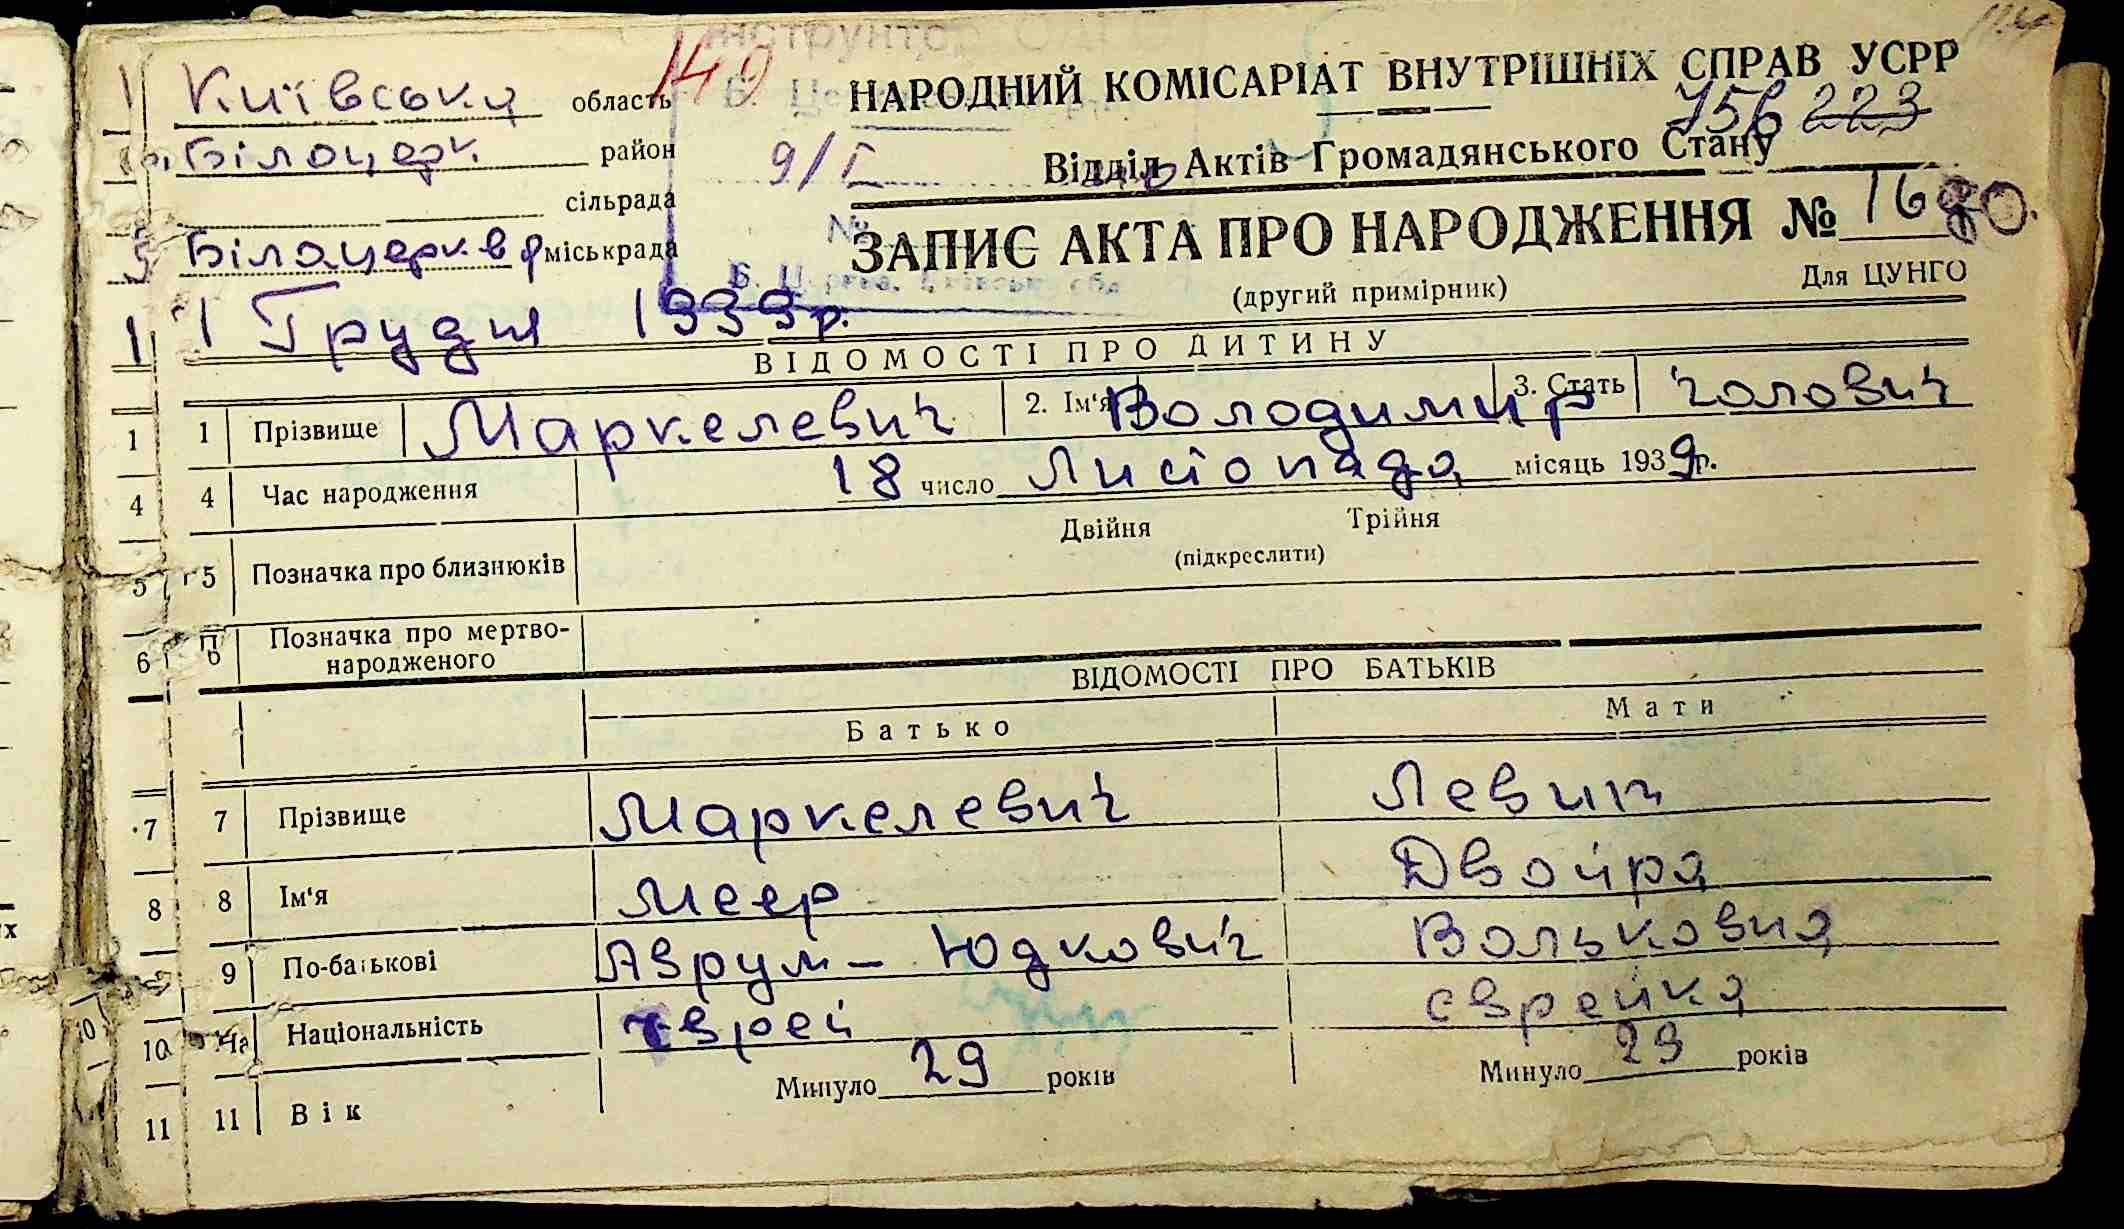 140
Київська область
НАРОДНИЙ КОМІСАРІАТ ВНУТРІШНІХ СПРАВ УСРР
756 223
Білоцерк район
9/I
Відділ Актів Громадянського Стану
сільрада
ЗАПИС АКТА ПРО НАРОДЖЕННЯ № 1680
Білоцерків міськрада
(другий примірник)
Для ЦУНГО
1 Грудня 1939 р.
ВІДОМОСТІ ПРО ДИТИНУ
1 1 Прізвище Маркелевич 2. Ім'я Володимир 3. Стать чолович
4 4 Час народження 18 число Листопада місяць 1939 р.
5 5 Позначка про близнюків Двійня Трійня
(підкреслити)
6 6 Позначка про мертво-
народженого
ВІДОМОСТІ ПРО БАТЬКІВ
Батько Мати
7 7 Прізвище Маркелевич Левин
8 8 Ім'я Меер Двойра
9 По-батькові Аврум-Юдкович Вольковна
10 Національність єврей єврейка
11 11 Вік Минуло 29 років Минуло 29 років